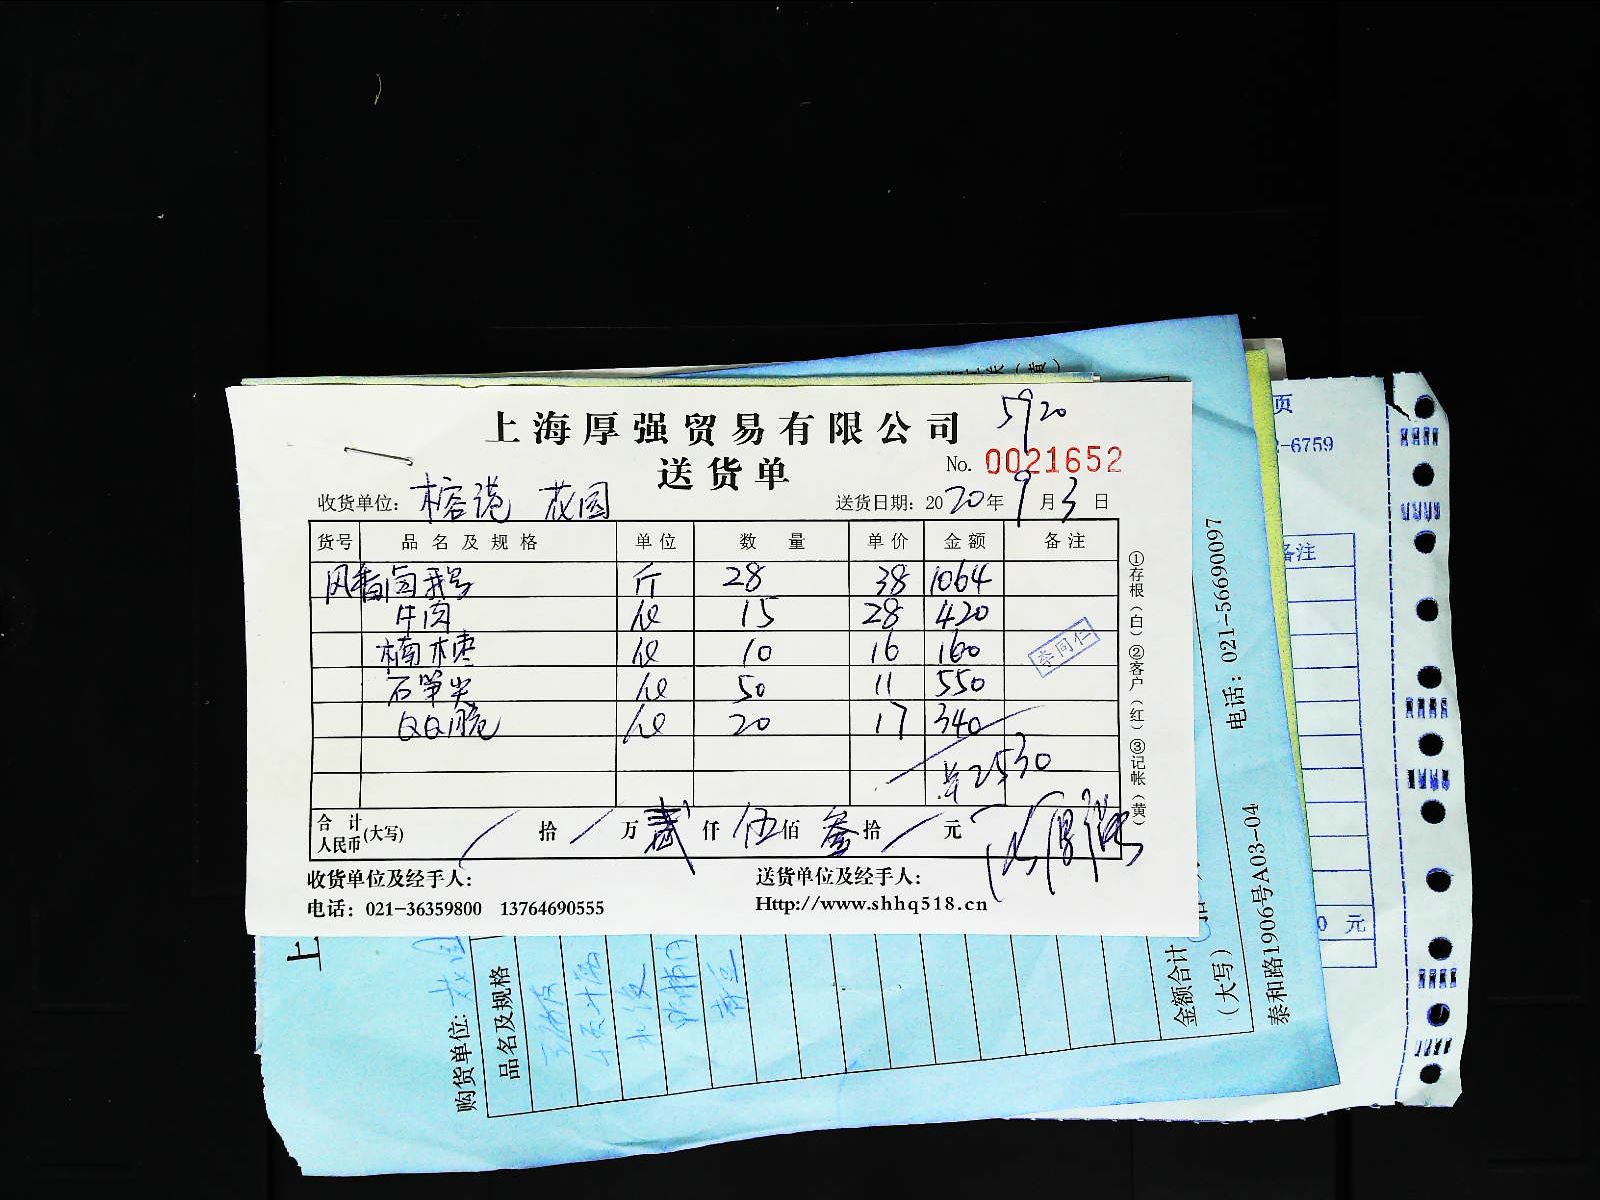 上海厚强贸易有限公司
5920
送货单
No. 0021652
收货单位: 榕港 花园
送货日期: 2020年9月3日
货号 品名及规格 单位 数量 单价 金额 备注
斤 28 38 1064
牛肉 15 28 420
楠木枣 10 16 160
石笋尖 50 11 550
QQ脆 20 17 340
李同仁
2530
合计人民币(大写) 拾 万 贰仟 伍佰 叁拾 元
收货单位及经手人:
送货单位及经手人:
电话: 021-36359800 13764690555
Http://www.shhq518.cn
①存根(白)②客户(红)③记帐(黄)
(黄)
电话: 021-56690097
泰和路1906号A03-04
上
购货单位: 花园
品名及规格
金额合计
(大写)
页
-6759
备注
0 元